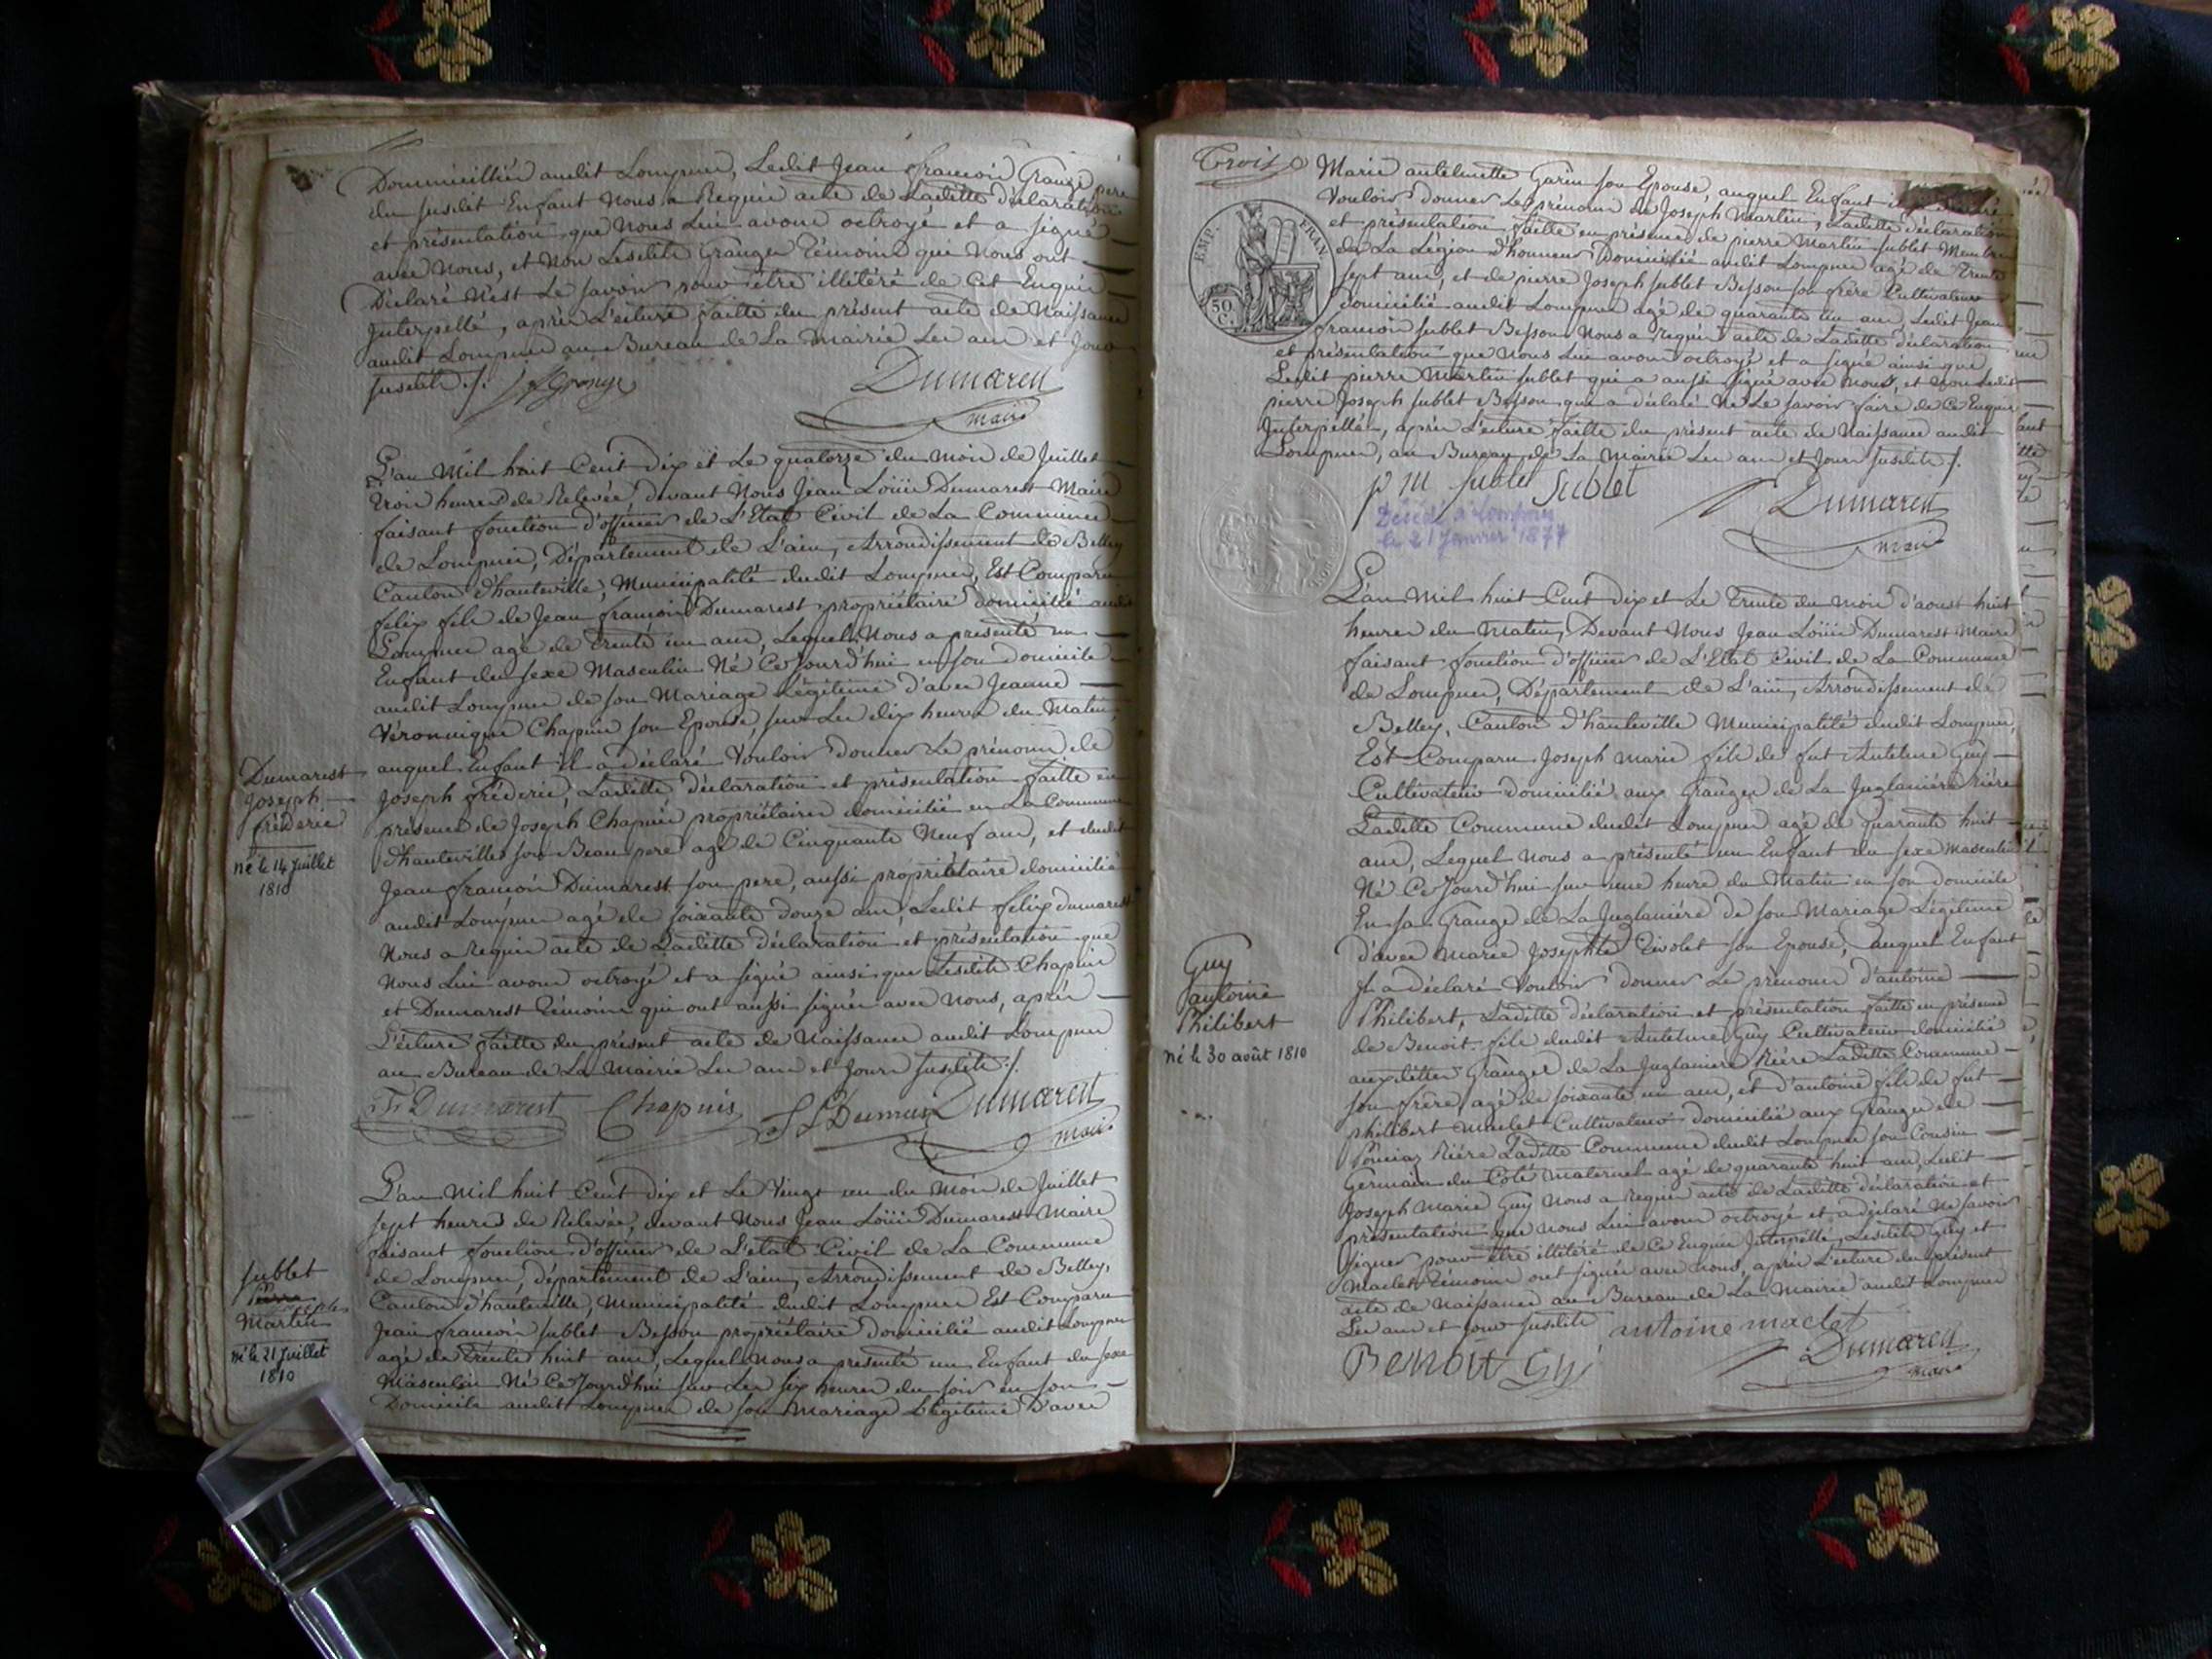 Domiciliés audit Lompnes, Ledit Jean françois Grange pere
du susdit Enfant Nous a Requis acte de Laditte déclaration
et présentation que Nous Lui avons octroyé et a signé
avec Nous, et Non Lesdits Granges Témoins qui Nous ont
Déclaré N'est Le savoir pour être illitéré de Cet Enquis
Interpellé, après L'ecture faitte du présent acte de Naissance
audit Lompnes au Bureau de La Mairie Les an et Jour
susdits ./.
Dumarest
maire
L'an Mil huit Cent dix et Le quatorze du Mois de Juillet
trois heures de Relevée, devant Nous Jean Loüis Dumarest Maire
faisant fonction d'officier de L'Etat Civil de La Commune
de Lompnes, Département de L'ain, Arrondissement de Belley
Canton d'hauteville, Municipalité dudit Lompnes, Est Comparu
felix fils de Jean françois Dumarest propriétaire domicilié audit
Lompnes agé de trente un ans, Lequel Nous a presenté un
Enfant du sexe Masculin Né Ce Jourd'hui en son domicile
audit Lompnes de son Mariage Légitime d'avec Jeanne
Véronique Chapuis son Epouse, sur Les dix heures du Matin,
auquel Enfant il a déclaré Vouloir donner Le prénom de
Joseph fréderic, Laditte déclaration et présentation faitte en
présence de Joseph Chapuis propriétaire domicilié en La Commune
d'hauteville son Beau pere agé de Cinquante Neuf ans, et dudit
Jean françois Dumarest son pere, aussi propriétaire domicilié
audit Lompnes agé de soixante douze ans, Ledit felix dumarest
Nous a requis acte de Laditte déclaration et présentation que
Nous Lui avons octroyé et a signé ainsi que Lesdits Chapuis
et Dumarest Témoins qui ont aussi signés avec Nous, après
L'ecture faitte du présent acte de Naissance audit Lompnes
au Bureau de La Mairie Les an et Jour susdits ./.
Dumarest
Joseph
fréderic
né le 14 Juillet
1810
F. Dumarest Chapuis Dumarest
maire
L'an Mil huit Cent dix et Le Vingt un du Mois de Juillet
sept heures de Relevée, devant Nous Jean Loüis Dumarest Maire
faisant fonction d'officier de L'état Civil de La Commune
de Lompnes, département de L'ain, Arrondissement de Belley,
Canton d'hauteville, Municipalité dudit Lompnes Est Comparu
Jean françois sublet Besson propriétaire Domicilié audit Lompnes
agé de trente huit ans, Lequel nous a presenté un Enfant du sexe
Masculin Né Ce Jourd'hui sur Les six heures du soir en son
Domicile audit Lompnes de son Mariage Légitime D'avec
sublet
Joseph
Martin
né le 21 Juillet
1810
Trois
EMP. FRAN.
50 C.
Marie antelmette Garin son Epouse, auquel Enfant il a déclaré
Vouloir donner Les prénoms de Joseph Martin, Laditte déclaration
et présentation faitte en présence de pierre Martin sublet Membre
de La Légion d'honneur Domicilié audit Lompnes agé de trente
sept ans, et de pierre Joseph sublet Besson son frère Cultivateur
domicilié audit Lompnes agé de quarante un ans, Ledit Jean
françois sublet Besson Nous a requis acte de Laditte déclaration
et présentation que Nous Lui avons octroyé et a signé ainsi que
Ledit pierre Martin sublet qui a aussi signé avec Nous, et Non Ledit
pierre Joseph sublet Besson qui a déclaré Ne Le savoir faire de Ce Enquis
Interpellé, après L'ecture faitte du présent acte de Naissance audit
Lompnes, au Bureau de La Mairie Les an et Jour susdits ./.
p M sublet Sublet
Dumarest
maire
Décédé à Lompnes
le 21 Janvier 1877
L'an Mil huit Cent dix et Le trente du Mois d'aoust huit
heures du Matin, Devant Nous Jean Loüis Dumarest Maire
faisant fonction d'officier de L'Etat Civil de La Commune
de Lompnes, Département de L'ain, Arrondissement de
Belley, Canton d'hauteville Municipalité dudit Lompnes,
Est Comparu Joseph Marie fils de fut Antelme Guy
Cultivateur domicilié aux Granges de La Juglanière Rière
Laditte Commune dudit Lompnes agé de quarante huit
ans, Lequel nous a présenté un Enfant du sexe masculin
Né Ce Jourd'hui sur une heure du Matin en son domicile
En sa Grange de La Juglanière de son Mariage Légitime
d'avec Marie Josephte Rivolet son Epouse, auquel Enfant
Il a déclaré Vouloir donner Le prénom d'antoine
Philibert, Laditte déclaration et présentation faitte en présence
de Benoit fils dudit Antelme Guy Cultivateur domicilié
auxdittes Granges de La Juglanière Rière Laditte Commune
son frère, agé de soixante un ans, et d'antoine fils de fut
philibert Maclet Cultivateur domicilié aux Granges de
Rière Laditte Commune dudit Lompnes son Cousin
Germain du Côté maternel agé de quarante huit ans, Ledit
Joseph Marie Guy Nous a requis acte de Laditte déclaration et
présentation que nous Lui avons octroyé et a déclaré Ne savoir
signer pour être illitéré de Ce Enquis Interpellé, Lesdits Guy et
Maclet Témoins ont signés avec nous, après L'ecture du présent
acte de Naissance au Bureau de La Mairie audit Lompnes
Les an et jour susdits
antoine maclet
Benoit Guy
Dumarest
maire
Guy
antoine
Philibert
né le 30 août 1810